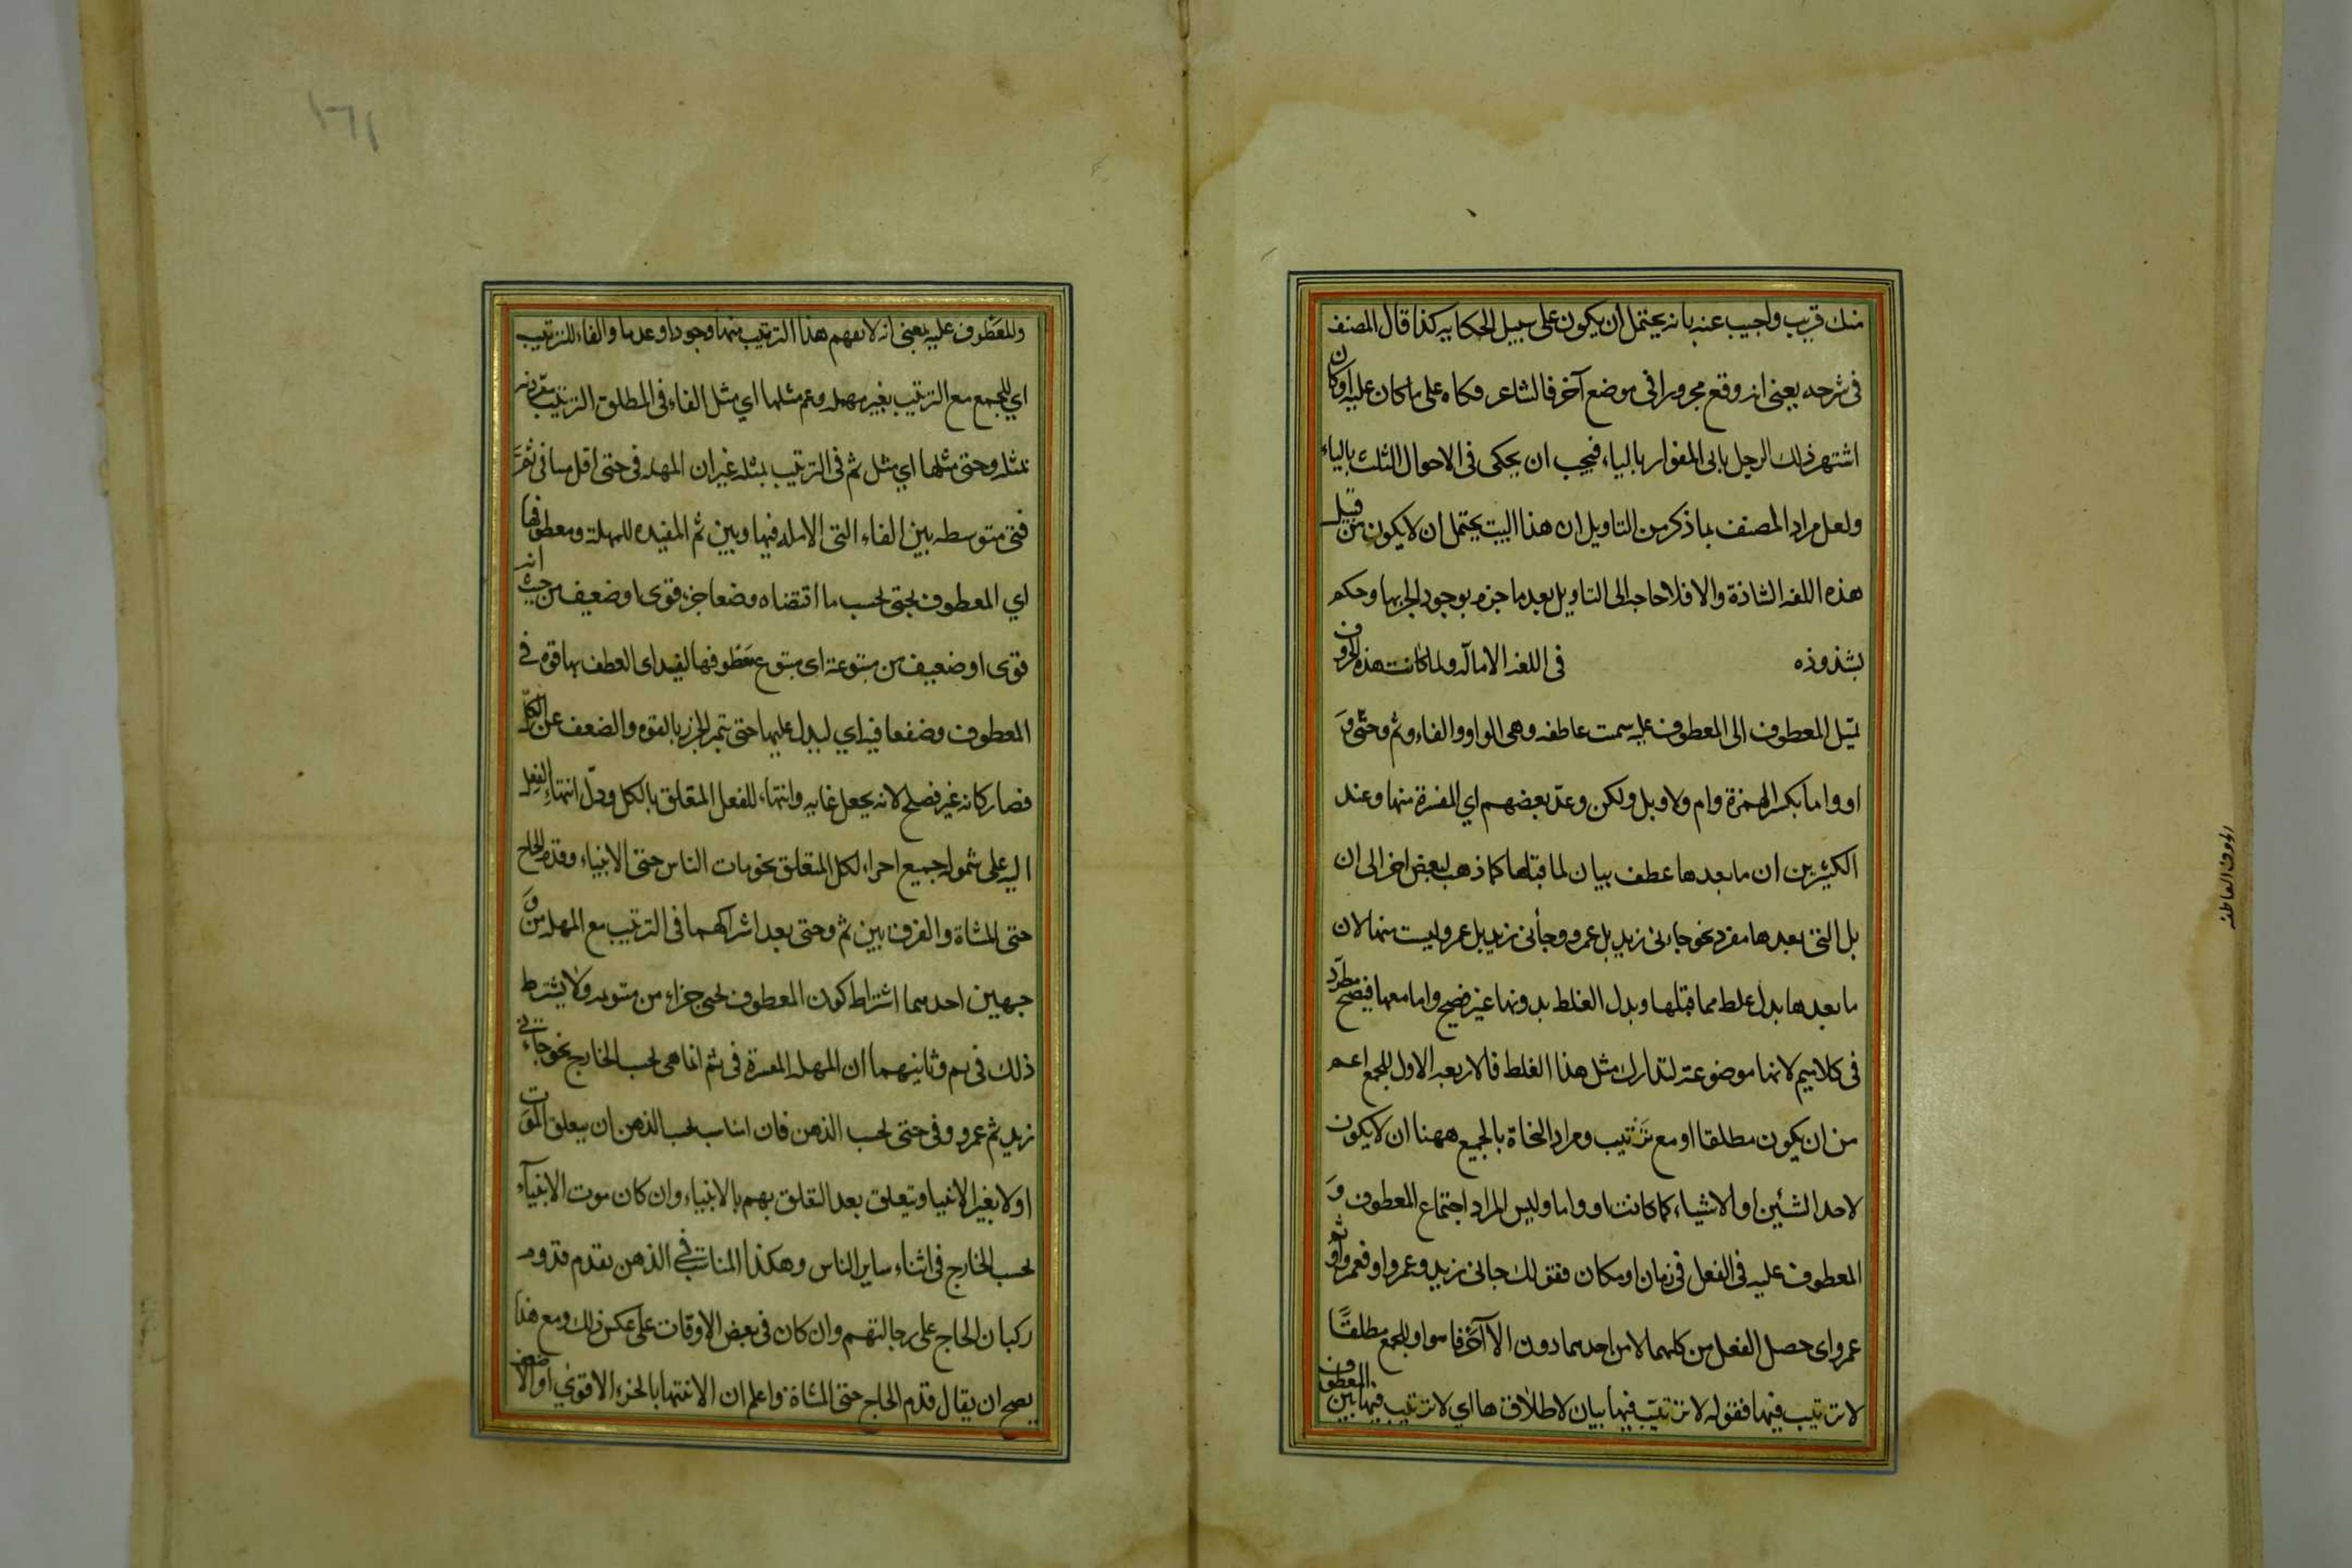 منك قريب واجيب عنه بانه يحتمل ان يكون على سبيل الحكايه كذا قال المصنف
فى شرحه يعنى انه وقع مجرورا فى موضع آخر فالشاعر حكاه على ما كان عليه او كان
اشتهر ذلك الرجل بابى المغوار بالياء فيجب ان يحكى فى الاحوال الثلث بالياء
ولعل مراد المصنف بما ذكر من التاويل ان هذا البيت يحتمل ان لا يكون من قبيل
هذه اللغه الشاذة والا فلا حاجه الى التاويل بعد ما جزم بوجود الجر بها وحكم
بشذوذه فى اللغه الاماله ولما كانت هذه الحروف
تميل المعطوف الى المعطوف عليه سمت عاطفه وهى الواو والفاء وثم وحتى و
او واما بكسر الهمزة وام ولا وبل ولكن وعد بعضهم اي المفسرة منها وعند
الكثيرين ان ما بعدها عطف بيان لما قبلها كما ذهب بعض اخر الى ان
بل التى بعدها مفرد نحو جانى زيد بل عمرو وجأنى زيد بل عمرو ليست منها لان
ما بعدها بدل غلط مما قبلها وبدل الغلط بدونها غير فصيح واما معها فيصح مطرد
فى كلامهم لانها موضوعة لتدارك مثل هذا الغلط فالاربعه الاول للجمع اعم
من ان يكون مطلقا او مع ترتيب ومراد النحاة بالجمع ههنا ان لا يكون
لاحد الشئين او الاشياء كما كانت او واما وليس المراد اجتماع المعطوف و
المعطوف عليه فى الفعل فى زمان او مكان فقولك جانى زيد وعمرو او فعمرو او ثم
عمرو اى حصل الفعل من كليهما لا من احدهما دون الاآخر فالواو للجمع مطلقًا
لا ترتيب فيها فقوله لا ترتيب فيها بيان لاطلاقها اي لا ترتيب فيها بين المعطوف
والمعطوف عليه بمعنى انه لا يفهم هذا الترتيب منها وجودا وعدما والفاء للترتيب
اي للجمع مع الترتيب بغير مهله وثم مثلها اي مثل الفاء فى المطلق الترتيب مقرونه
بمثله وحتى مثلها اي مثل ثم فى الترتيب بمثله غير ان المهله فى حتى اقل منها فى ثم
فهى متوسطه بين الفاء التى لا مهله فيها وبين ثم المفيده للمهلة ومعطوفها
اي المعطوف بحتى بحسب ما اقتضاه وضعا جزء قوى او ضعيف من حيث انه
قوى او ضعيف من متبوعه اى متبوع معطوفها ليفيد اى العطف بها قوه فى
المعطوف وضعفا فيه اي ليدل عليها حتى يتميز الجزء بالقوه والضعف عن الكل
فصار كانه غيره فصلح لانه يجعل غايه وانتهاء للفعل المتعلق بالكل ودلّ انتهاء الفعل
اليه على شموله جميع اجزاء الكل المتعلق نحو مات الناس حتى الانبياء وقدم الحاج
حتى المشاة والفرق بين ثم وحتى بعد اشراكهما فى الترتيب مع المهله من و
جهين احدهما اشتراط كون المعطوف بحتى جزاء من متبوعه ولا يشترط
ذلك فى ثم وثانيهما ان المهله المعتبرة فى ثم انما هى بحسب الخارج نحو جاءنى
زيد ثم عمرو وفى حتى بحسب الذهن فان المناسب بحسب الذهن ان يتعلق الموت
اولا بغير الانبيا ويتعلق بعد التعلق بهم بالانبياء وان كان موت الانبيآء
بحسب الخارج فى اثناء ساير الناس وهكذا المناسب فى الذهن تقدم قدوم
ركبان الحاج على رجالتهم وان كان فى بعض الاوقات على عكس ذلك ومع هذا
يصح ان يقال قدم الحاج حتى المشاة واعلم ان الانتها بالجزء الاقوي او الاضعف
الحروف العاطفه
١٦١